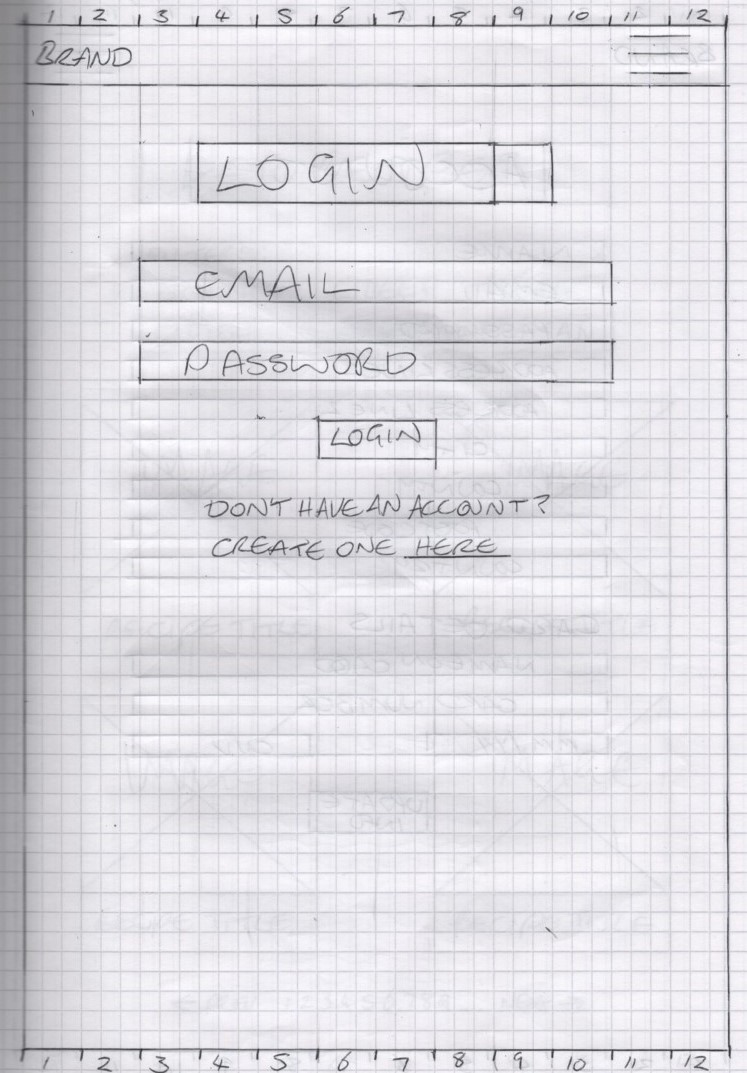 1 2 3 4 5 6 7 8 9 10 11 12
BRAND
LOGIN
EMAIL
PASSWORD
LOGIN
DON'T HAVE AN ACCOUNT?
CREATE ONE HERE
1 2 3 4 5 6 7 8 9 10 11 12